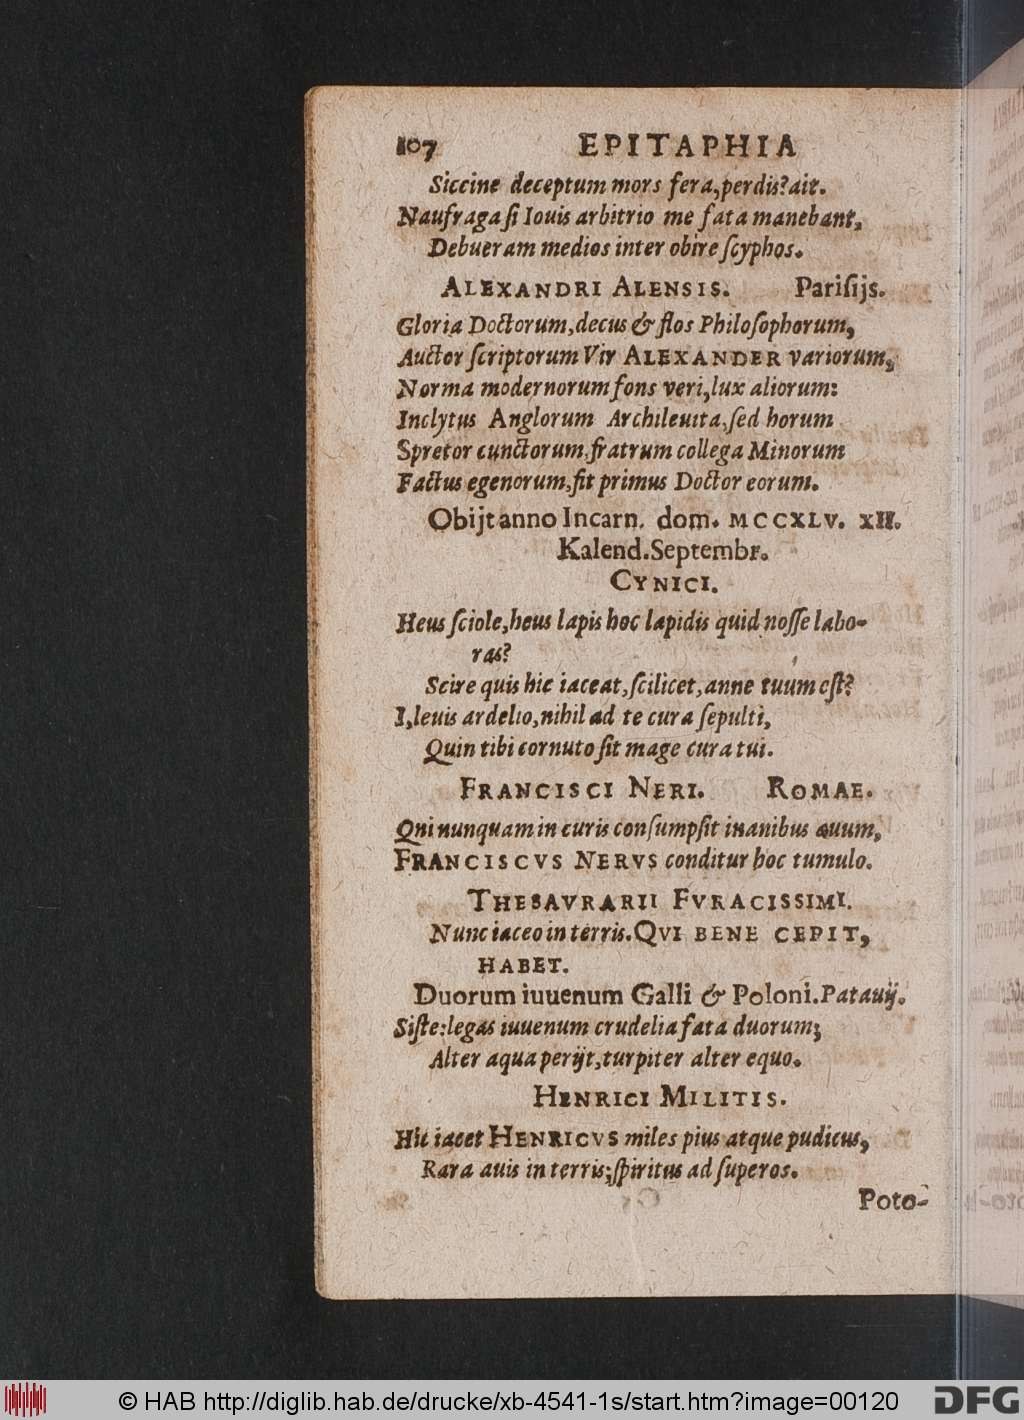 107 EPITAPHIA
Siccine deceptum mors fera,perdis?ait.
Naufraga ſi Iouis arbitrio me fata manebant,
Debueram medios inter obire ſcyphos.
ALEXANDRI ALENSIS. Pariſijs.
Gloria Doctorum,decus & flos Philoſophorum,
Auctor ſcriptorum Vir ALEXANDER variorum,
Norma modernorum fons veri,lux aliorum:
Inclytus Anglorum Archileuita,ſed horum
Spretor cunctorum,fratrum collega Minorum
Factus egenorum,fit primus Doctor eorum.
Obijt anno Incarn. dom. MCCXLV. XII.
Kalend.Septembr.
CYNICI.
Heus ſciole,heus lapis hoc lapidis quid noſſe labo-
ras?
Scire quis hic iaceat,ſcilicet,anne tuum eſt?
I,leuis ardelio,nihil ad te cura ſepulti,
Quin tibi cornuto ſit mage cura tui.
FRANCISCI NERI. ROMAE.
Qni nunquam in curis conſumpſit inanibus æuum,
FRANCISCVS NERVS conditur hoc tumulo.
THESAVRARII FVRACISSIMI.
Nunc iaceo in terris.QVI BENE CEPIT,
HABET.
Duorum iuuenum Galli & Poloni.Patauij.
Siſte:legas iuuenum crudelia fata duorum;
Alter aqua perijt,turpiter alter equo.
HENRICI MILITIS.
Hic iacet HENRICVS miles pius atque pudicus,
Rara auis in terris;ſpiritus ad ſuperos.
Poto-
© HAB http://diglib.hab.de/drucke/xb-4541-1s/start.htm?image=00120 DFG